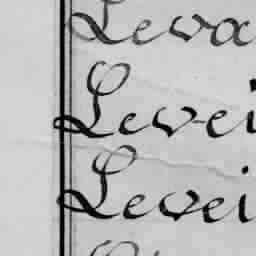 Leva
Levei
Levei